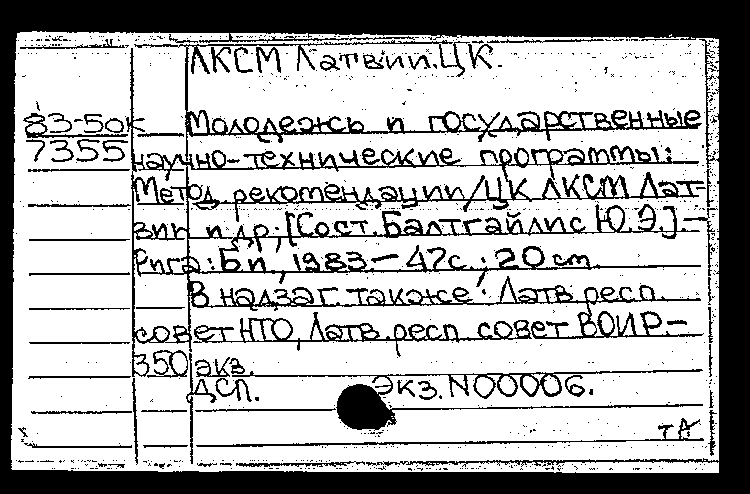 ЛКСМ Латвии. ЦК.
83-50к Молодежь и государственные
7355 научно-технические программы:
Метод. рекомендации/ЦК ЛКСМ Лат-
вии и др.; [Сост. Балтгайлис Ю.Э.].-
Рига: Б.и., 1983.- 47с.; 20 cm.
В надзаг. также: Латв. респ.
совет НТО, Латв. респ. совет ВОИР.-
350 экз.
ДСП. Экз. N00006.